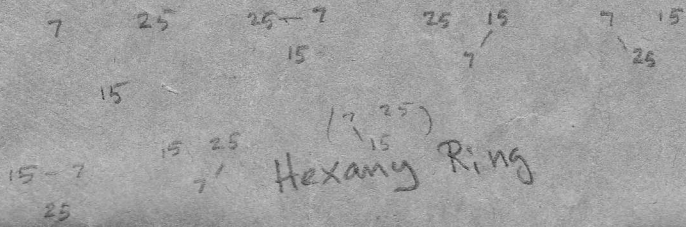 7 25 25 — 7 25 15 7 15
15 7 25
15
(7 25)
15 25 15
15 — 7 7 Hexany Ring
25